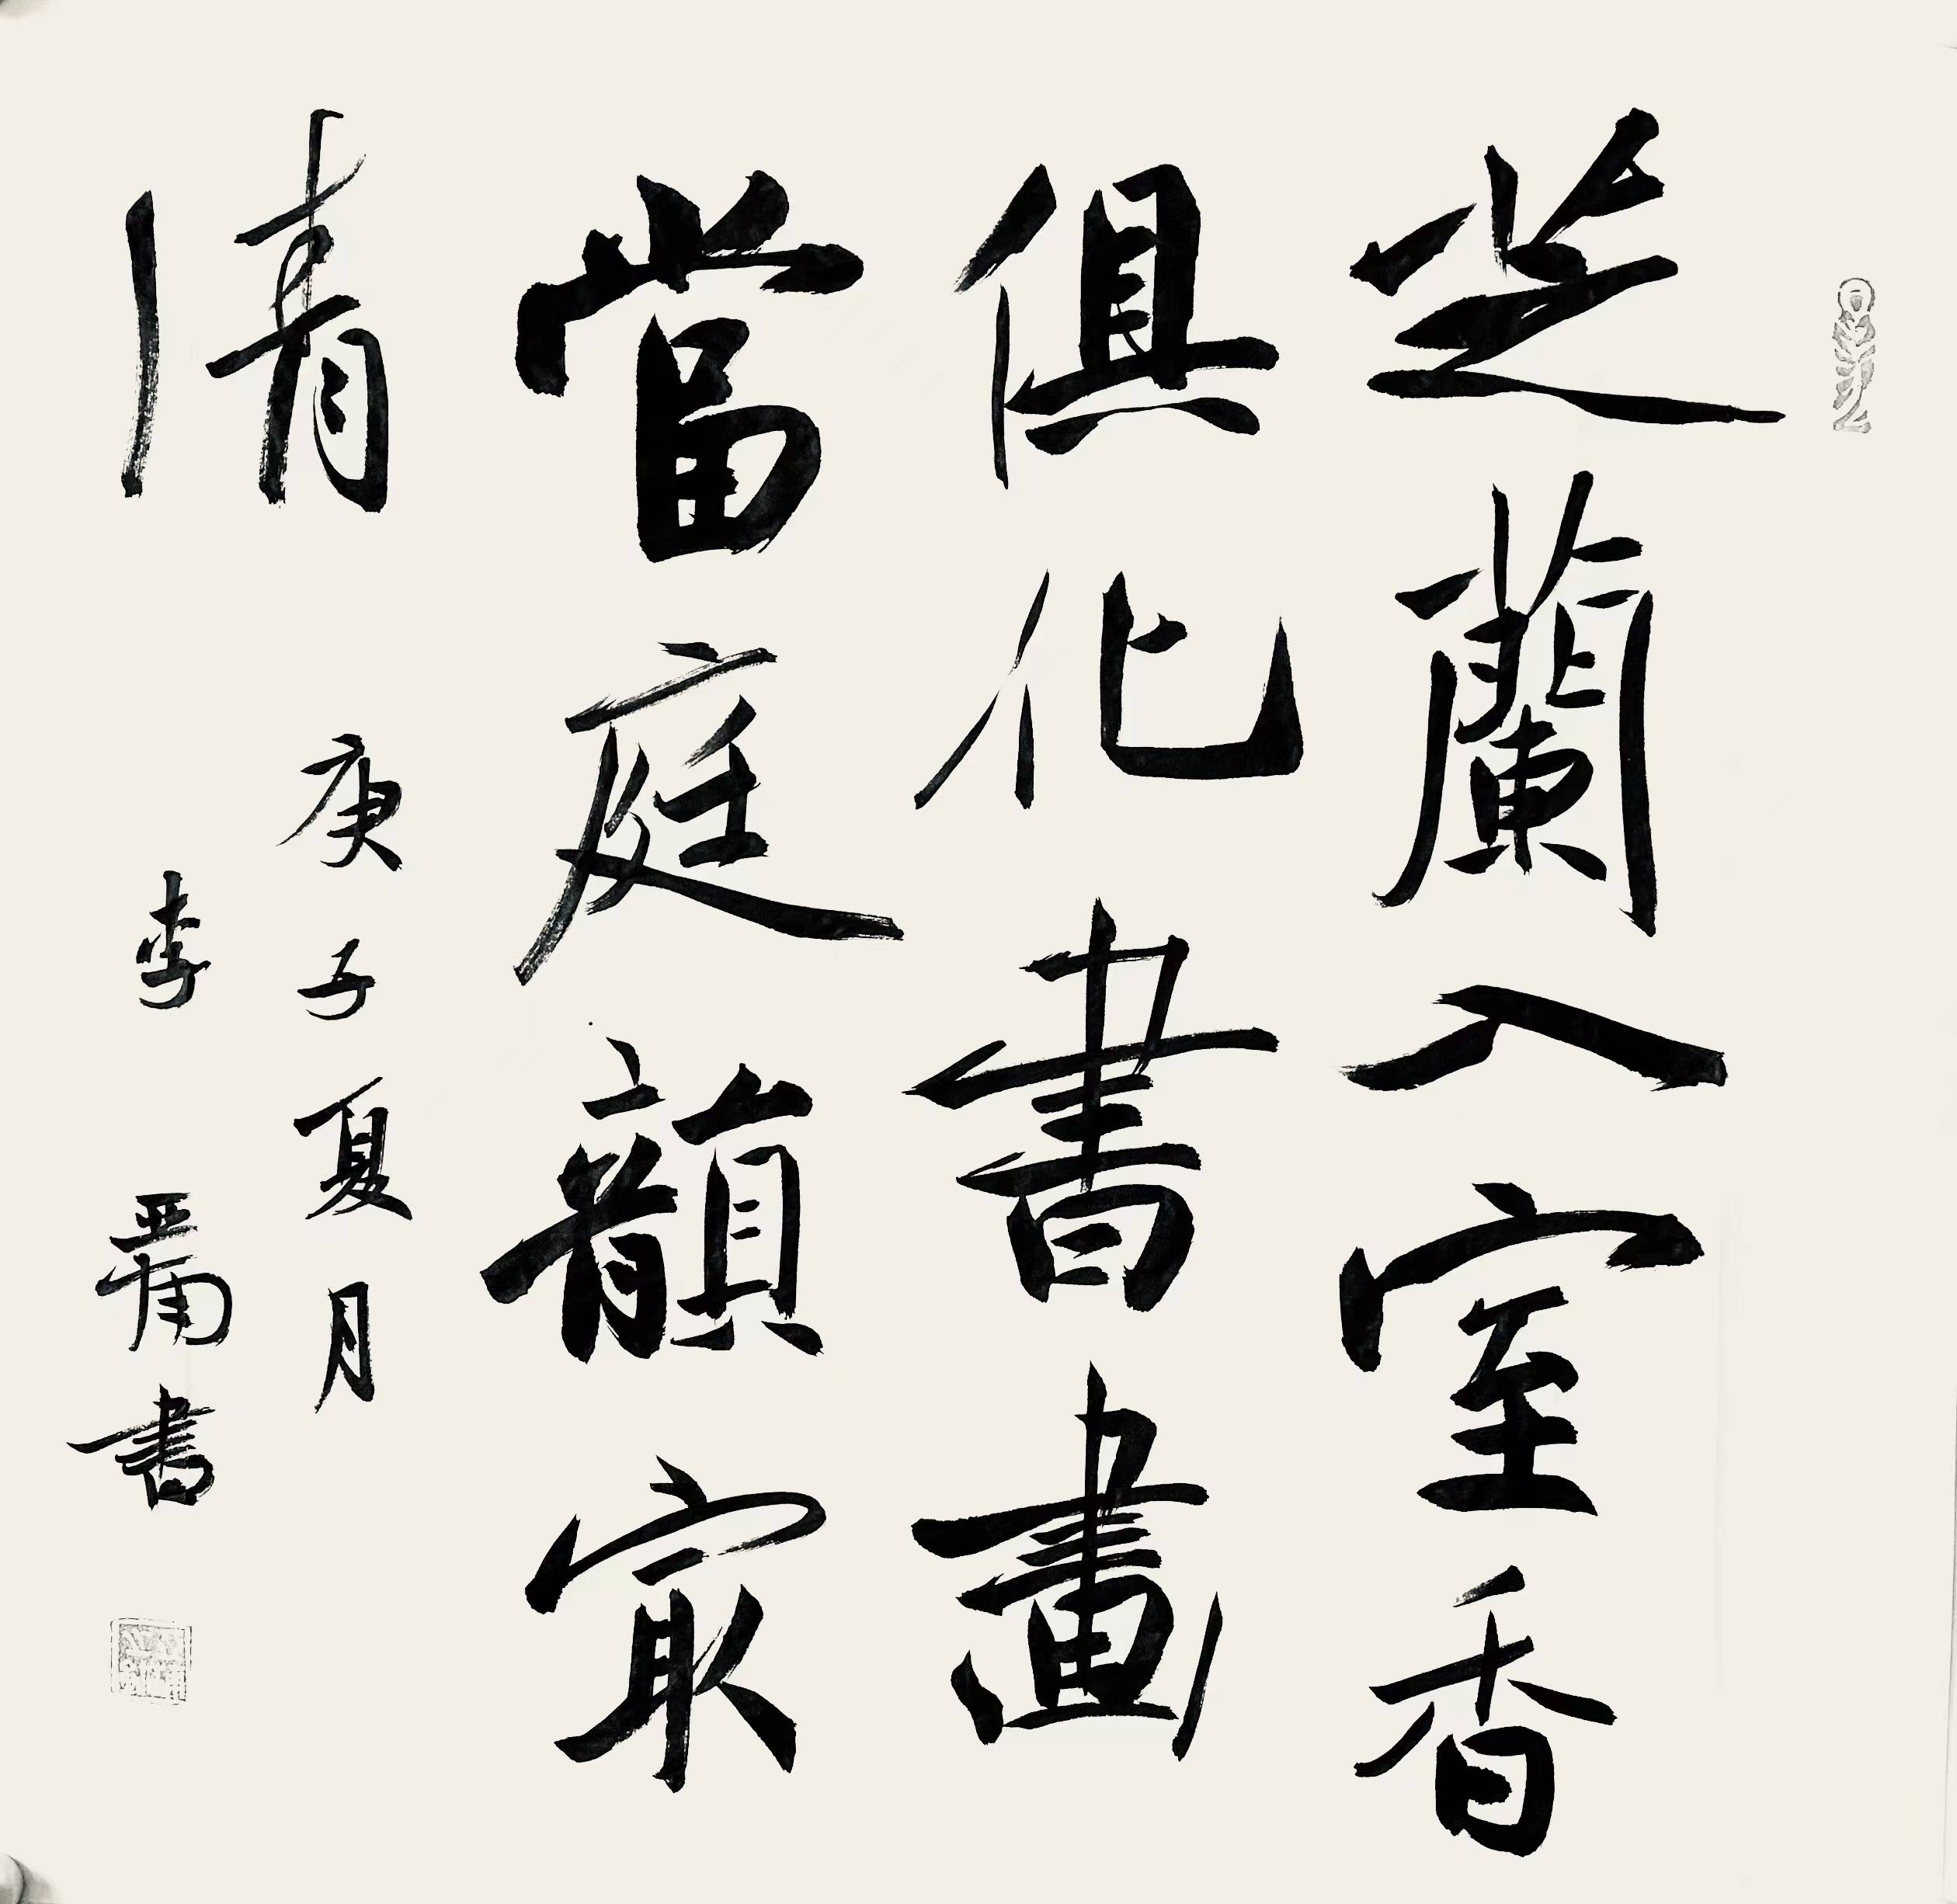 芝蘭入室香
俱化書畫
當庭韻寂
清
庚子夏月
李
書